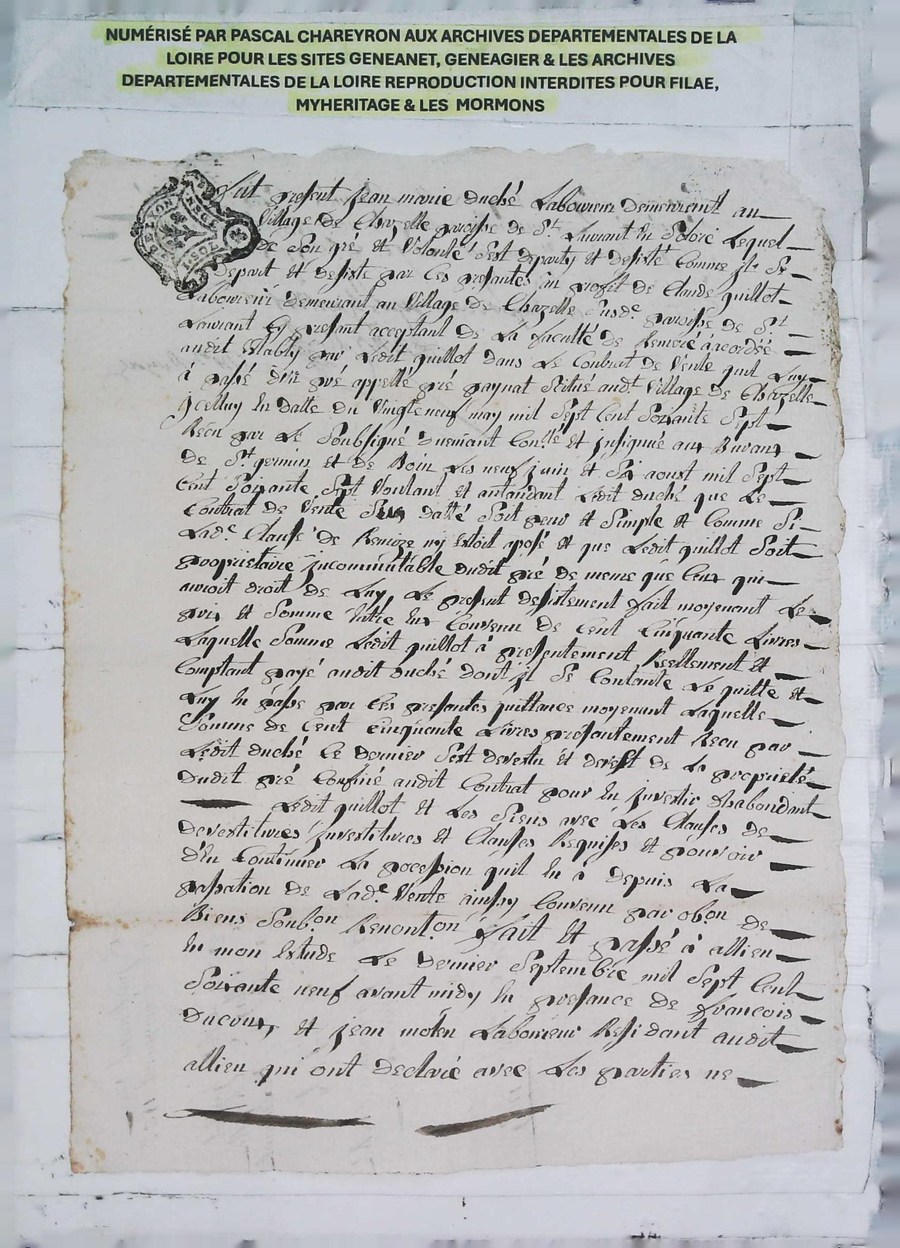 NUMÉRISÉ PAR PASCAL CHAREYRON AUX ARCHIVES DEPARTEMENTALES DE LA
LOIRE POUR LES SITES GENEANET, GENEAGIER & LES ARCHIVES
DEPARTEMENTALES DE LA LOIRE REPRODUCTION INTERDITES POUR FILAE,
MYHERITAGE & LES MORMONS
Fut present jean marie duché Laboureur demeurant au
Village de Chazelle paroisse de St Laurant En Solore Lequel
de Son gré et Volonté s'est departy et desisté Comme jl Se
depart et desiste par ces presantes au profit de Claude quillot
Laboureur demeurant au Village de Chazelle Susde paroisse de St
Laurant Cy presant acceptant de La faculté de Remeré acordée
audit par Ledit quillot dans Le Contrat de Vente quil Luy
à passé d'un pré appellé pré gaynat Scitué audt Village de Chazelle
jcelluy En datte du Vingtneuf may mil Sept Cent Soixante Sept
Recu par Le Soubsigné duement Conllé et jnsignué aux Buraux
de St germin et de Boin Les neuf juin et Six aoust mil Sept
Cent Soixante Sept Voulant et antandant Ledit duché que Le
Contrat de Vente Sus datté Soit peur et Simple et Comme Si
Lade Clause de Remere ny Estoit aposé et que Ledit quillot Soit
propriettaire jncommutable dudit pré de meme que Ceux qui
auroit droit de Luy, Le present desistement fait moyenant Le
prix et Somme Entre Eux Convenu de Cent Cinquante Livres
Laquelle Somme Ledit quillot à presentement Reellement et
Comptant payé audit duché dont jl Se Contante Le quitte et
Luy En passe par Ces presantes quittance moyenant Laquelle
Somme de Cent Cinquante Livres présantement Recu par
Ledit duché Ce dernier Sest devestu et devest de La propriété
dudit pré Confiné audit Contrat pour En jnvestir dhabondant
Ledit quillot et Les Siens avec Les Clauses de
devestitures jnvestitures et Clauses Requises et pouvoir
d'En Continuer La pocession quil En à depuis La
passation de Lade Vente ainsy Convenu par obon de
Biens Soubon Renonton fait Et passé à allien
En mon Estude Le dernier Septembre mil Sept Cent
Soixante neuf avant midy En presance de francois
et jean Laboureur Residant audit
allien qui ont declaré avec Les parties ne